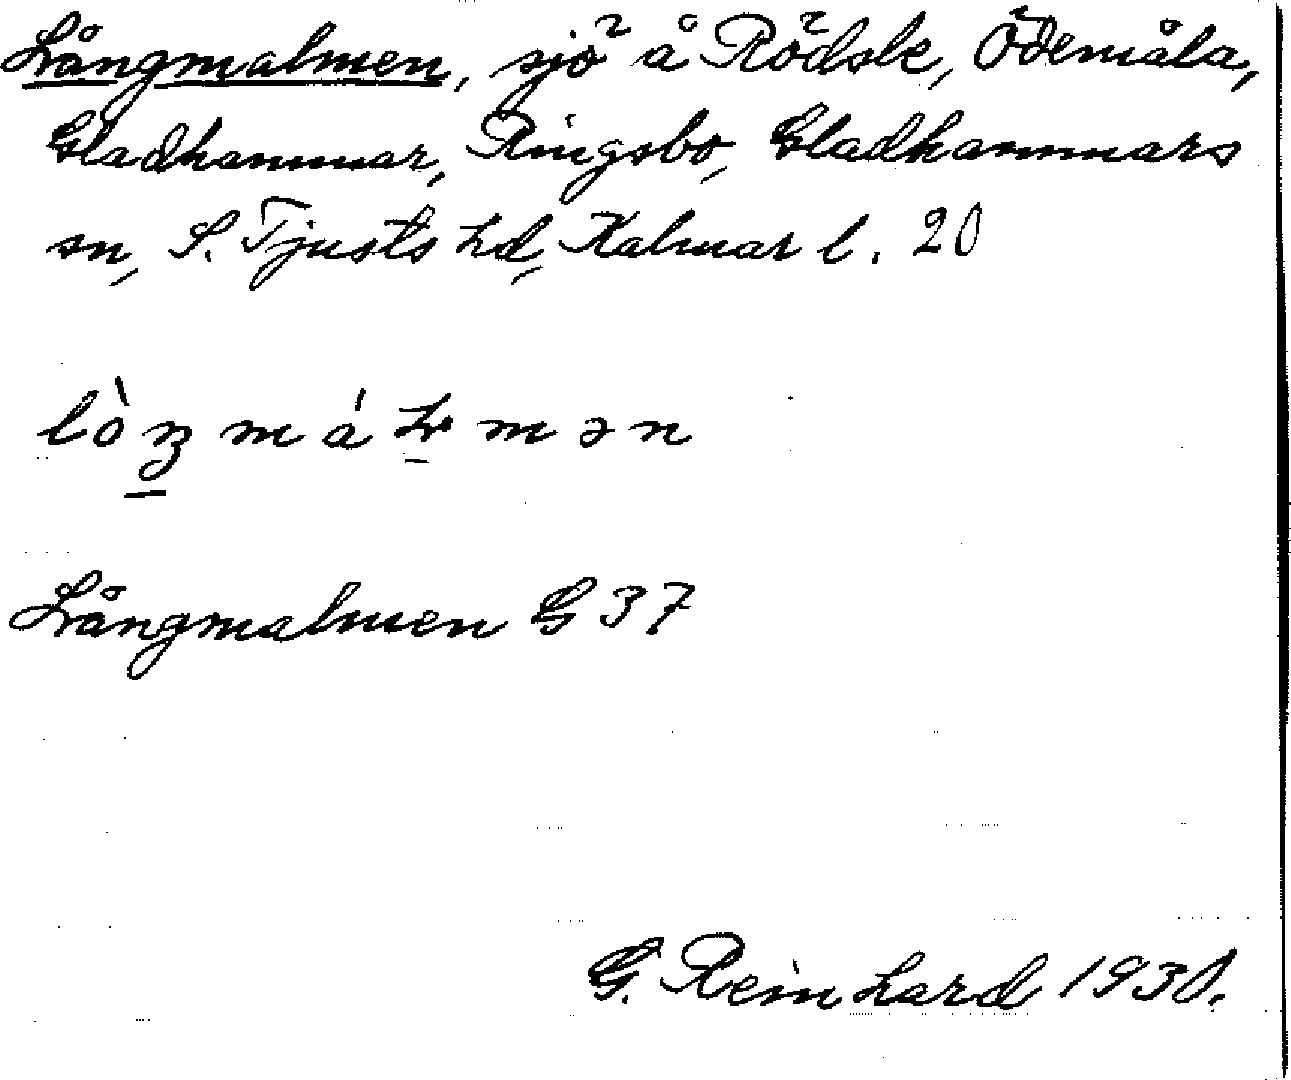 Långmalmen, sjö å Rödsle, Ödemåla,
Gladhammar, Ringsbo, Gladhammars
sn, S. Tjusts hd, Kalmar l. 20
Långmalmen G 37
G. Reinhard 1930.